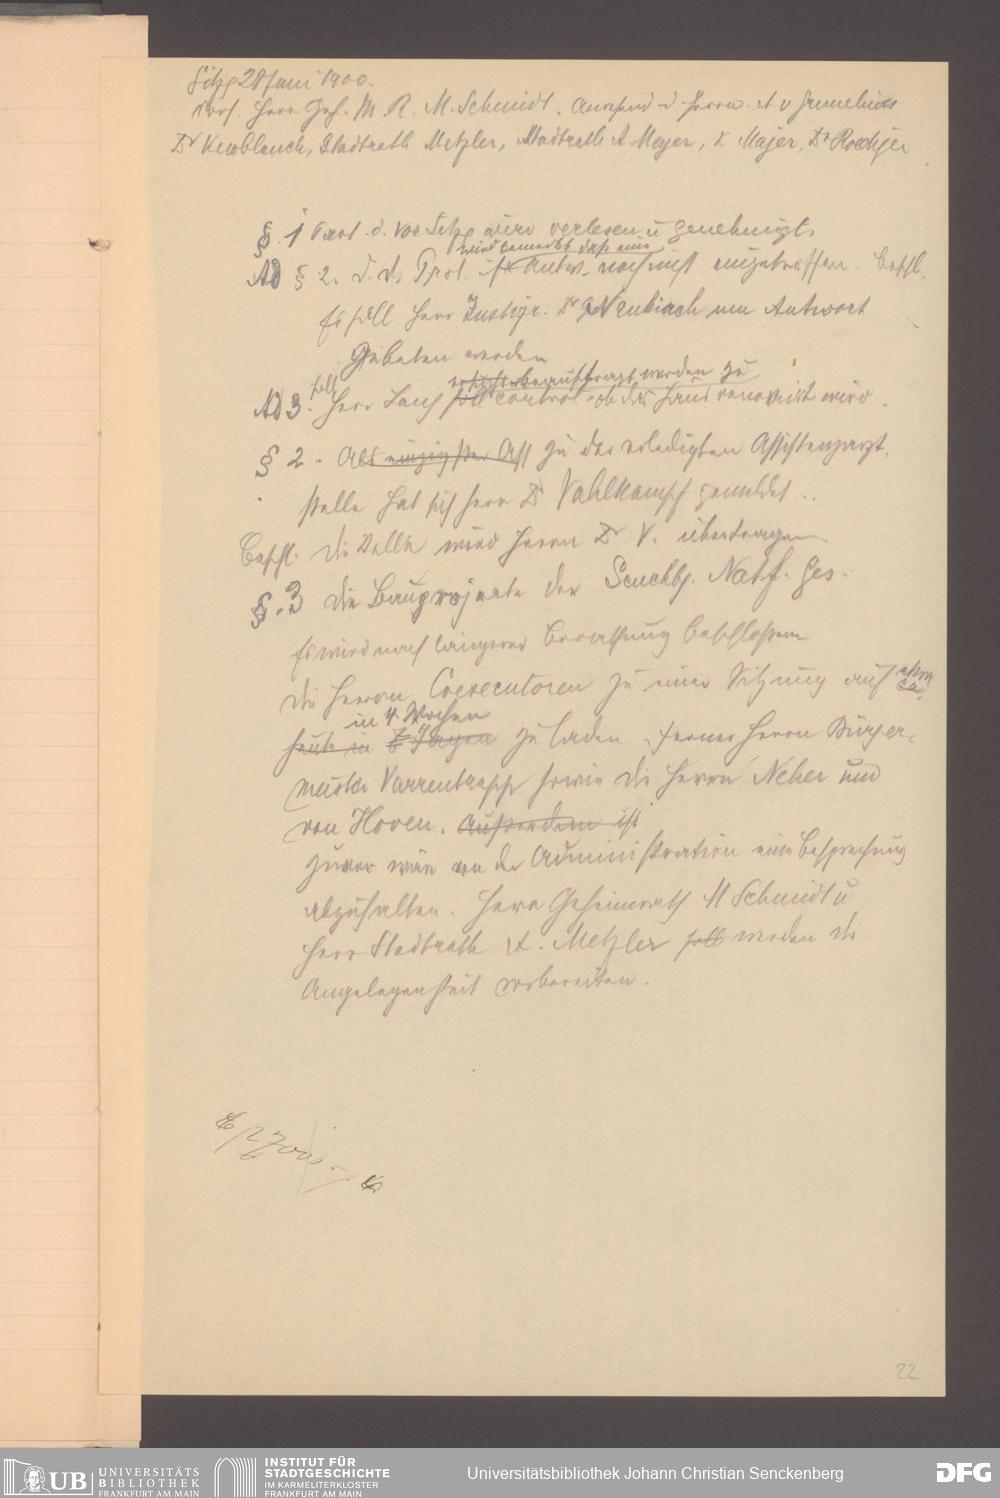 Sitzg 28 Juni 1900.
Vors. Herr Geh. M. R. M. Schmidt. Anwesend d Herrn. A v
Dr Knoblauch, Stadtrath Metzler, Stadtrath A Meyer, X. Majer, Dr Roediger
§. 1 Prot. d. vor Sitzg wird verlesen u genehmigt.
wird bemerkt daß eine
Ad § 2. d. d. Prot. ist Antw. noch nicht eingetroffen. Beschl.
Es soll Herr Justizr. Dr Neubirch um Antwort
Gebeten werden
soll beauftragt werden zu
Ad 3. Herr Lauf soll control. ob das Haus renovirt wird.
§ 2. Als einzigster Ass zu der erledigten Assistenzarzt,
stelle hat sich Herr Dr Vahlkampf gemeldet..
Beschl. die Stelle wird Herrn Dr. V. übertragen
§. 3 die Bauprojecte der Senckbg. Natf. Ges.
Es wird nach längerer Berathung beschloßen
die Herrn Coexecutoren zu einer Sitzung auf ca.
in 4 Wochen
heute in 8 Tagen zu laden, ferner Herrn Bürger-
meister Varrentrapp sowie die Herrn Neher und
von Hoven. Außerdem ist
zuvor wäre von der Administration eine Besprechung
abzuhalten. Herr Geheimrath M Schmidt u
Herr Stadtrath A. Metzler soll werden die
Angelegenheit vorbereiten.
22
UB UNIVERSITÄTS
BIBLIOTHEK
FRANKFURT AM MAIN
INSTITUT FÜR
STADTGESCHICHTE
IM KARMELITERKLOSTER
FRANKFURT AM MAIN
Universitätsbibliothek Johann Christian Senckenberg
DFG